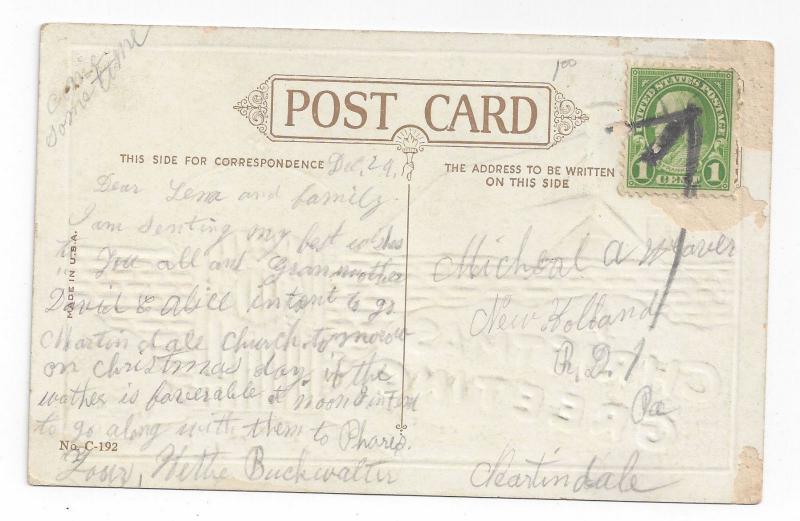 Come
some time
1 00
POST CARD
THIS SIDE FOR CORRESPONDENCE
Dec, 24,
THE ADDRESS TO BE WRITTEN
ON THIS SIDE
UNITED STATES POSTAGE
1 CENT 1
MADE IN U.S.A.
Dear Lena and family
I am senting my best wishes
to you all and Granmother
David & Alice intant to go
Martindale church tomorow
on christmas day if the
wather is faverable & Noon intant
to go along with them to Phares.
Your, Hettie Buckwalter
No. C-192
Micheal A Weaver
New Holland
R. D. 1
Pa
Martindale
CHRISTMAS
GREETINGS